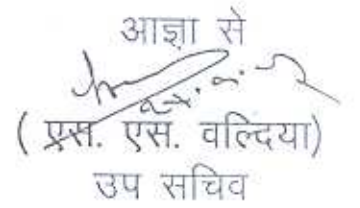 आज्ञा से
( एस. एस. वल्दिया)
उप सचिव